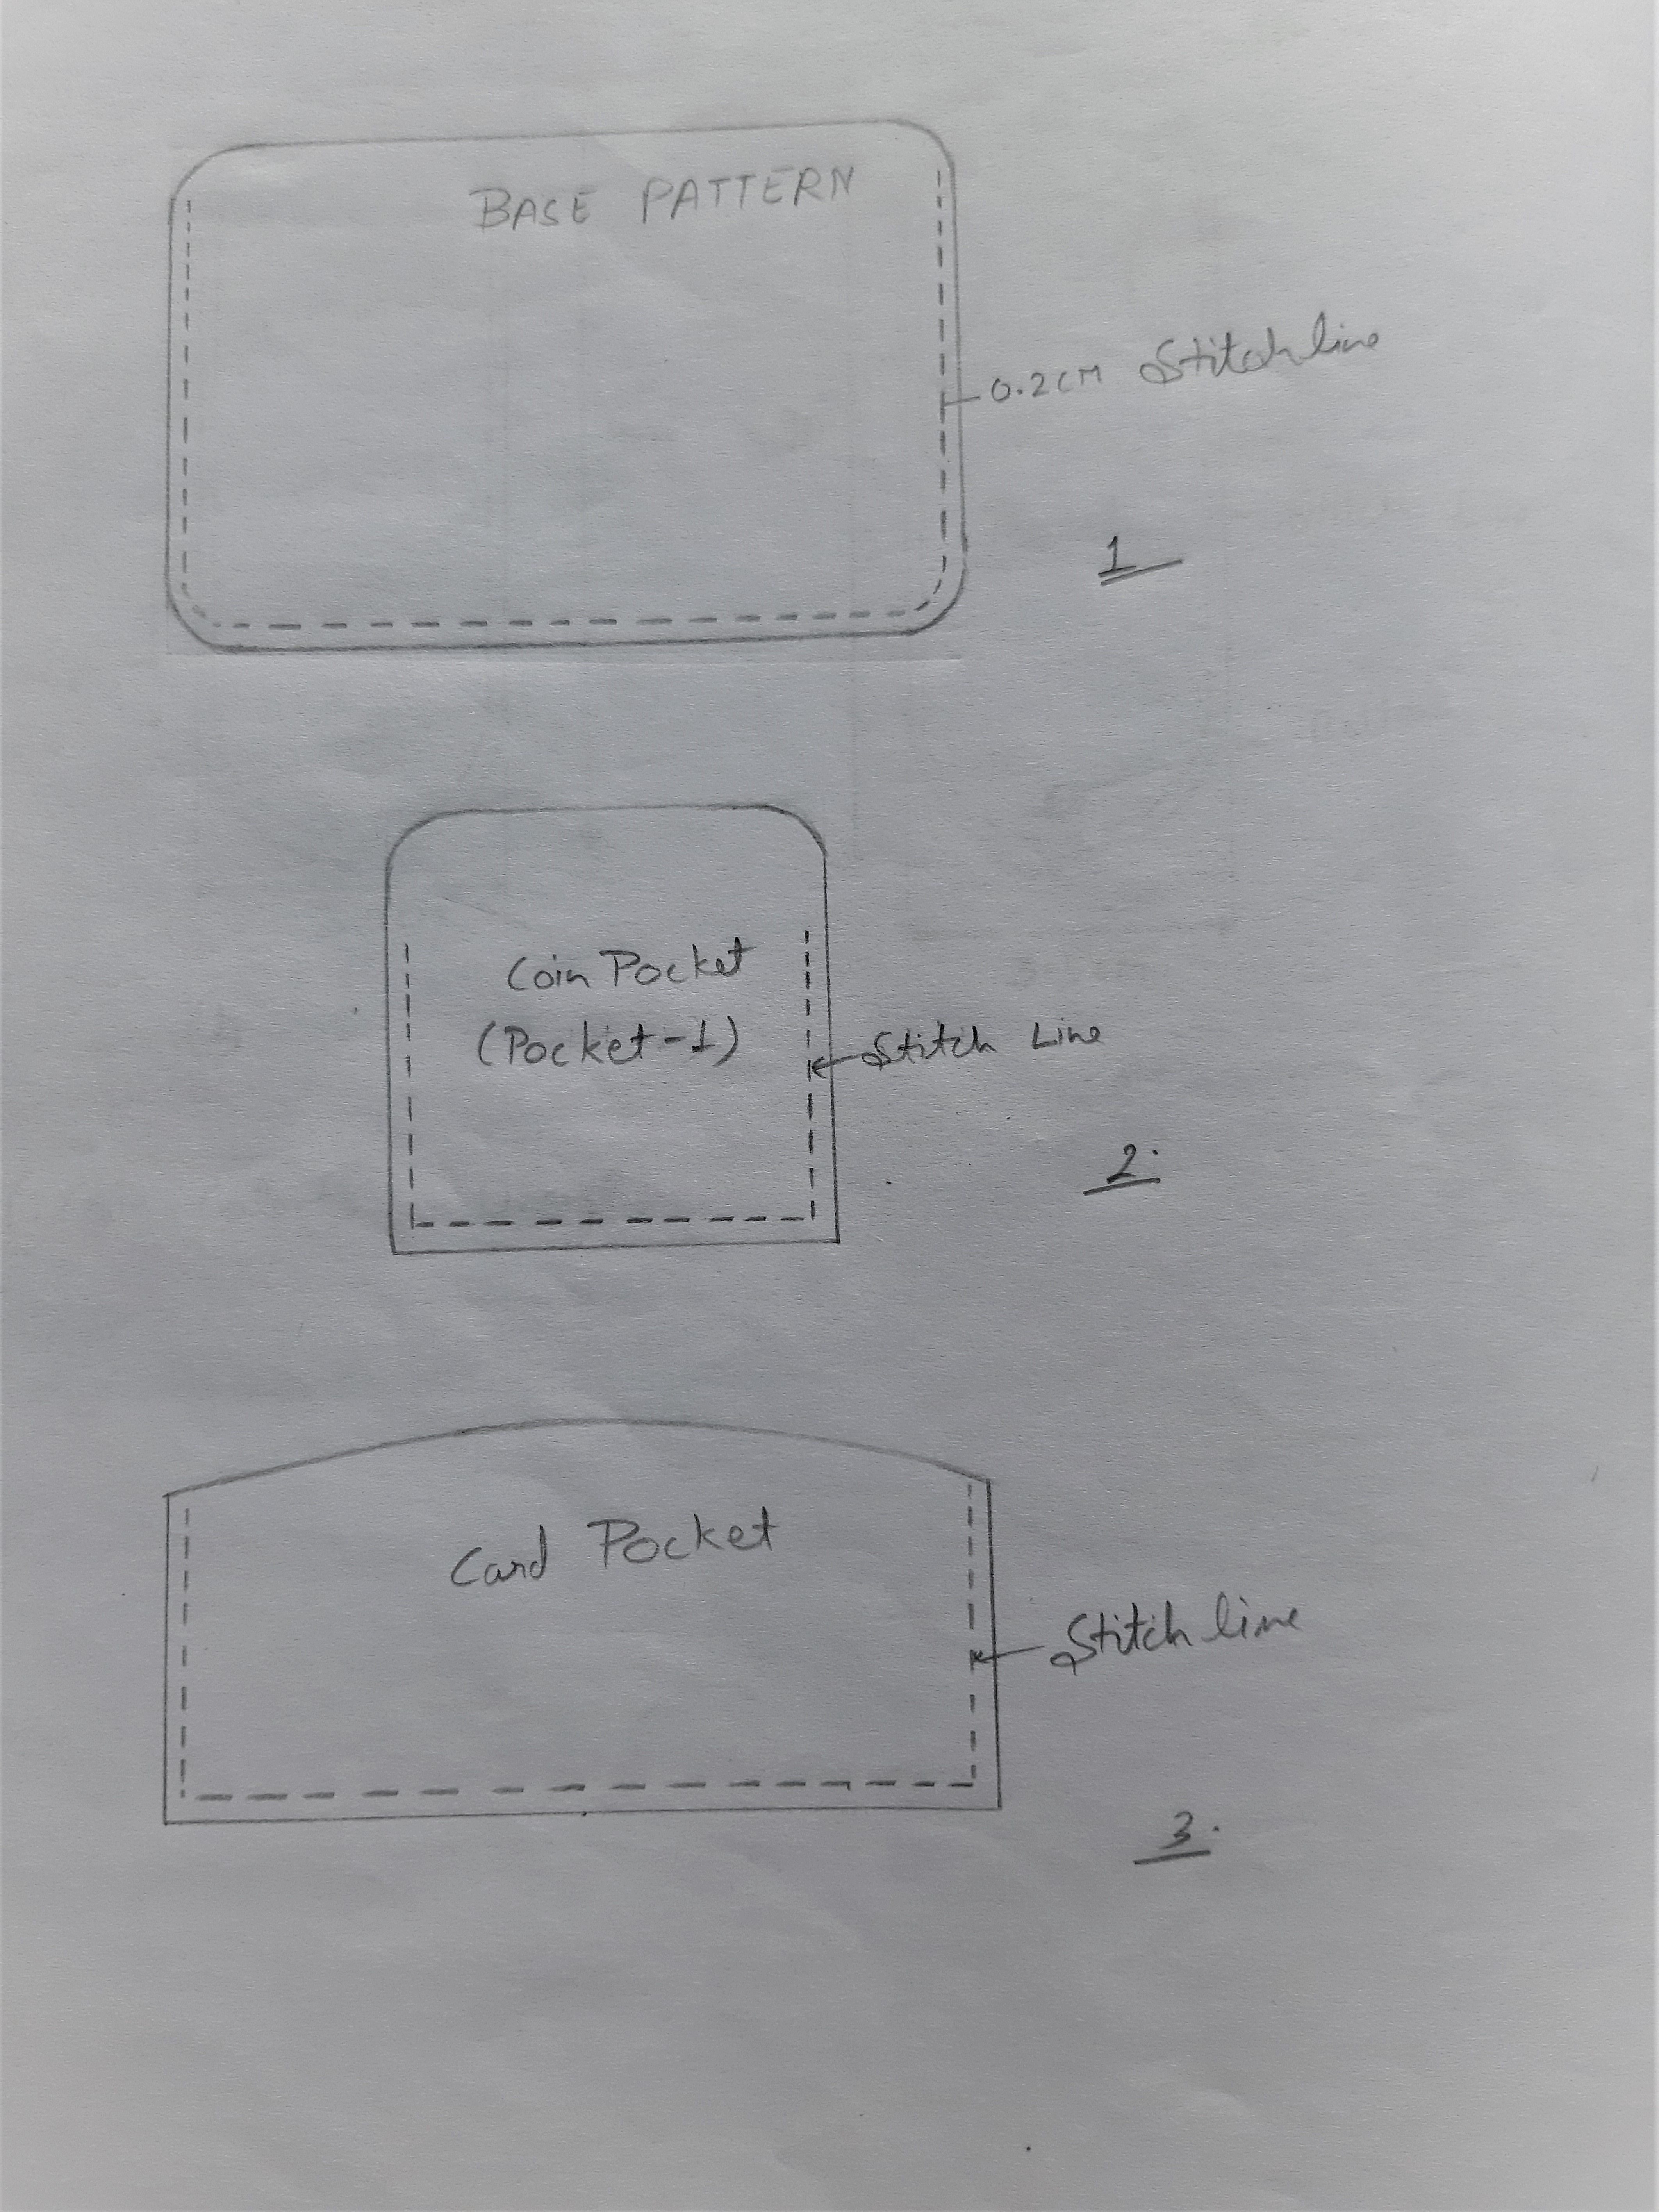 BASE PATTERN
0.2CM Stitch line
1
Coin Pocket
(Pocket-1)
Stitch Line
2.
Card Pocket
Stitch line
3.